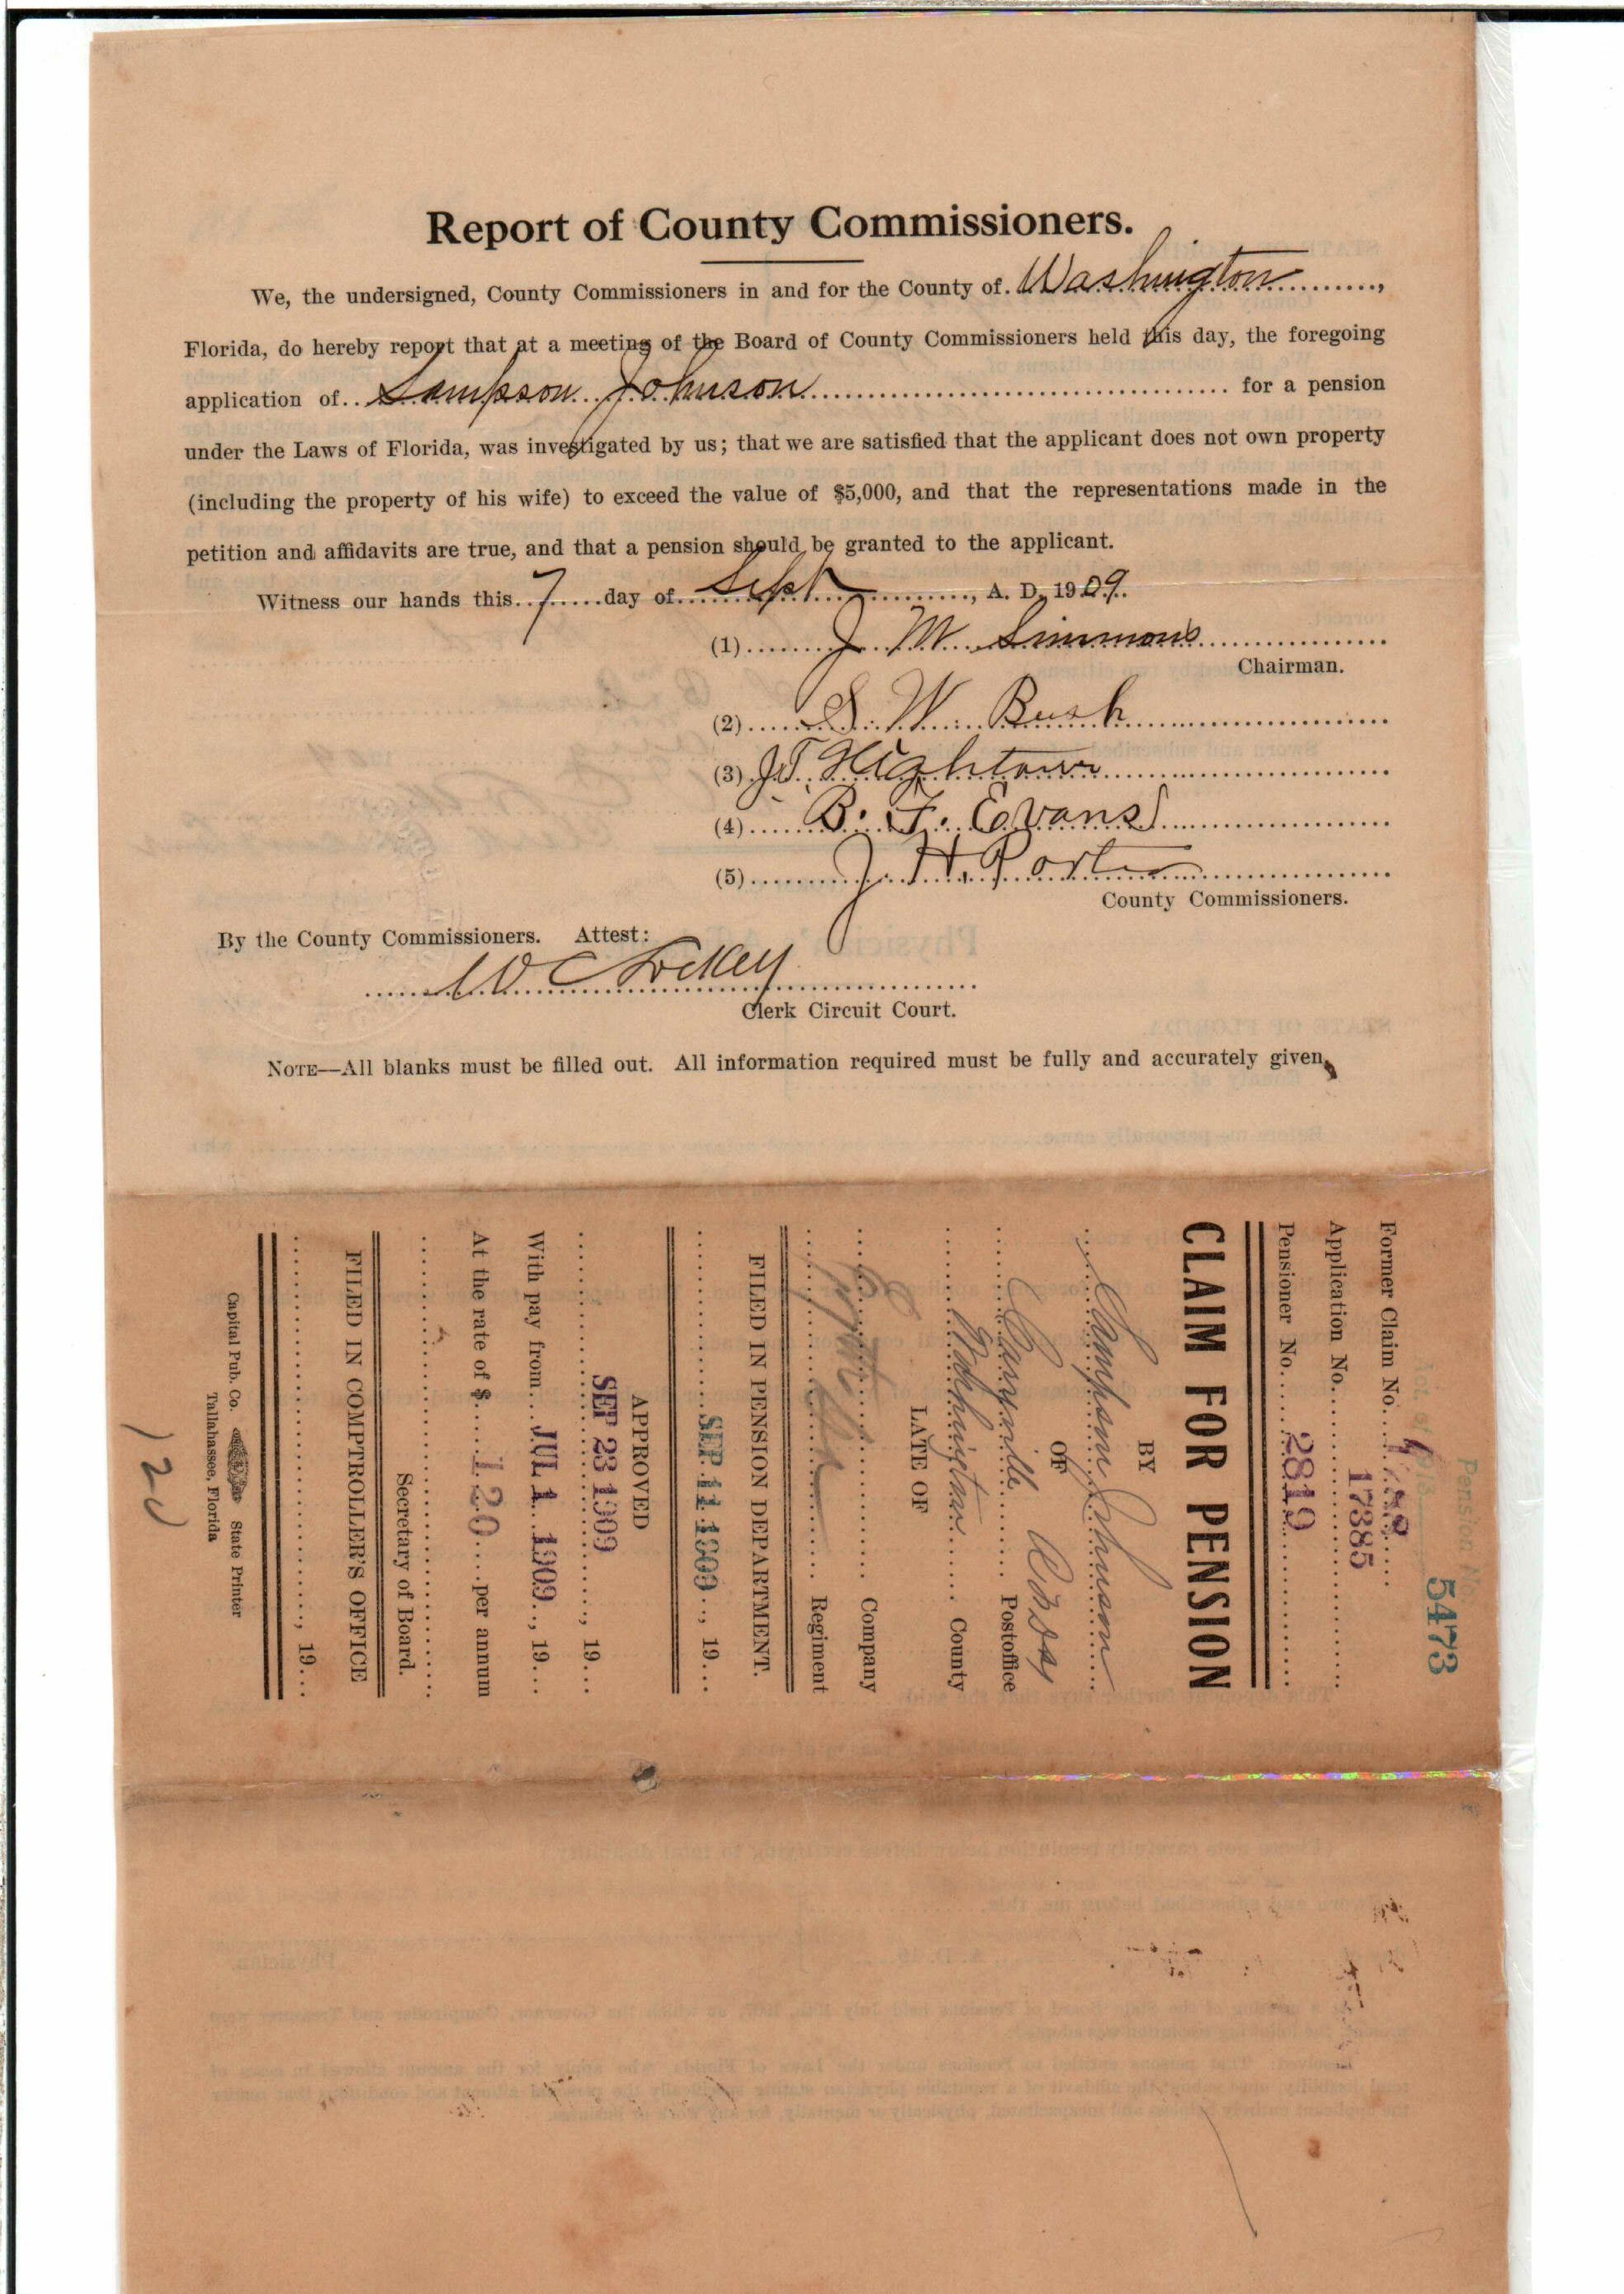 Report of County Commissioners.
We, the undersigned, County Commissioners in and for the County of Washington,
Florida, do hereby report that at a meeting of the Board of County Commissioners held this day, the foregoing
application of Sampson Johnson for a pension
under the Laws of Florida, was investigated by us; that we are satisfied that the applicant does not own property
(including the property of his wife) to exceed the value of $5,000, and that the representations made in the
petition and affidavits are true, and that a pension should be granted to the applicant.
Witness our hands this 7 day of Sept, A. D. 1909.
(1) J. M. Simmons
Chairman.
(2) S. W. Bush
(3) J T Hightower
(4) B. F. Evans
(5) J. H. Porter
County Commissioners.
By the County Commissioners. Attest:
W C Lockey
Clerk Circuit Court.
NOTE—All blanks must be filled out. All information required must be fully and accurately given.
Pension No. 5473
Former Claim No.
Application No. 17385
Pensioner No. 2819
CLAIM FOR PENSION
BY
Sampson Johnson
OF
Caryville Postoffice
Washington County
LATE OF
Company
Regiment
FILED IN PENSION DEPARTMENT.
SEP 11 1909, 19
APPROVED
SEP 23 1909, 19
With pay from JUL 1 1909, 19
At the rate of $ 120 per annum
Secretary of Board.
FILED IN COMPTROLLER'S OFFICE
, 19
Capital Pub. Co. State Printer
Tallahassee, Florida
120